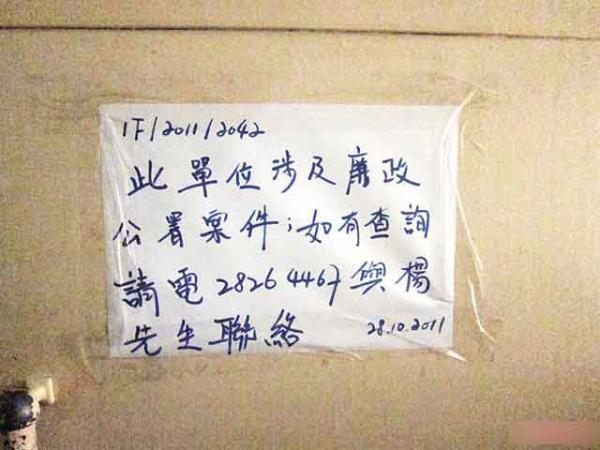 IF/2011/2042
此單位涉及廉政
公署案件;如有查詢
請電28264467與楊
先生聯絡
28.10.2011